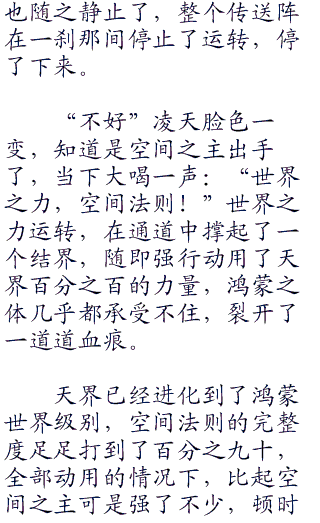 也随之静止了，整个传送阵
在一刹那间停止了运转，停
了下来。
“不好”凌天脸色一
变，知道是空间之主出手
了，当下大喝一声：“世界
之力，空间法则！”世界之
力运转，在通道中撑起了一
个结界，随即强行动用了天
界百分之百的力量，鸿蒙之
体几乎都承受不住，裂开了
一道道血痕。
天界已经进化到了鸿蒙
世界级别，空间法则的完整
度足足打到了百分之九十，
全部动用的情况下，比起空
间之主可是强了不少，顿时